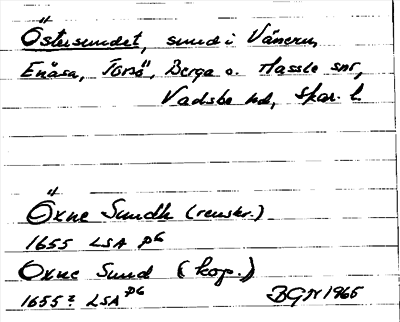 Östersundet, sund i Vänern,
Enåsa, Torsö, Berga o. Hassle snr,
Vadsbo hd, Skar. l.
Öxne Sundh (renskr.)
1655 LSA P6
Öxne Sund (kop.)
1655? LSA P6 BGN 1965